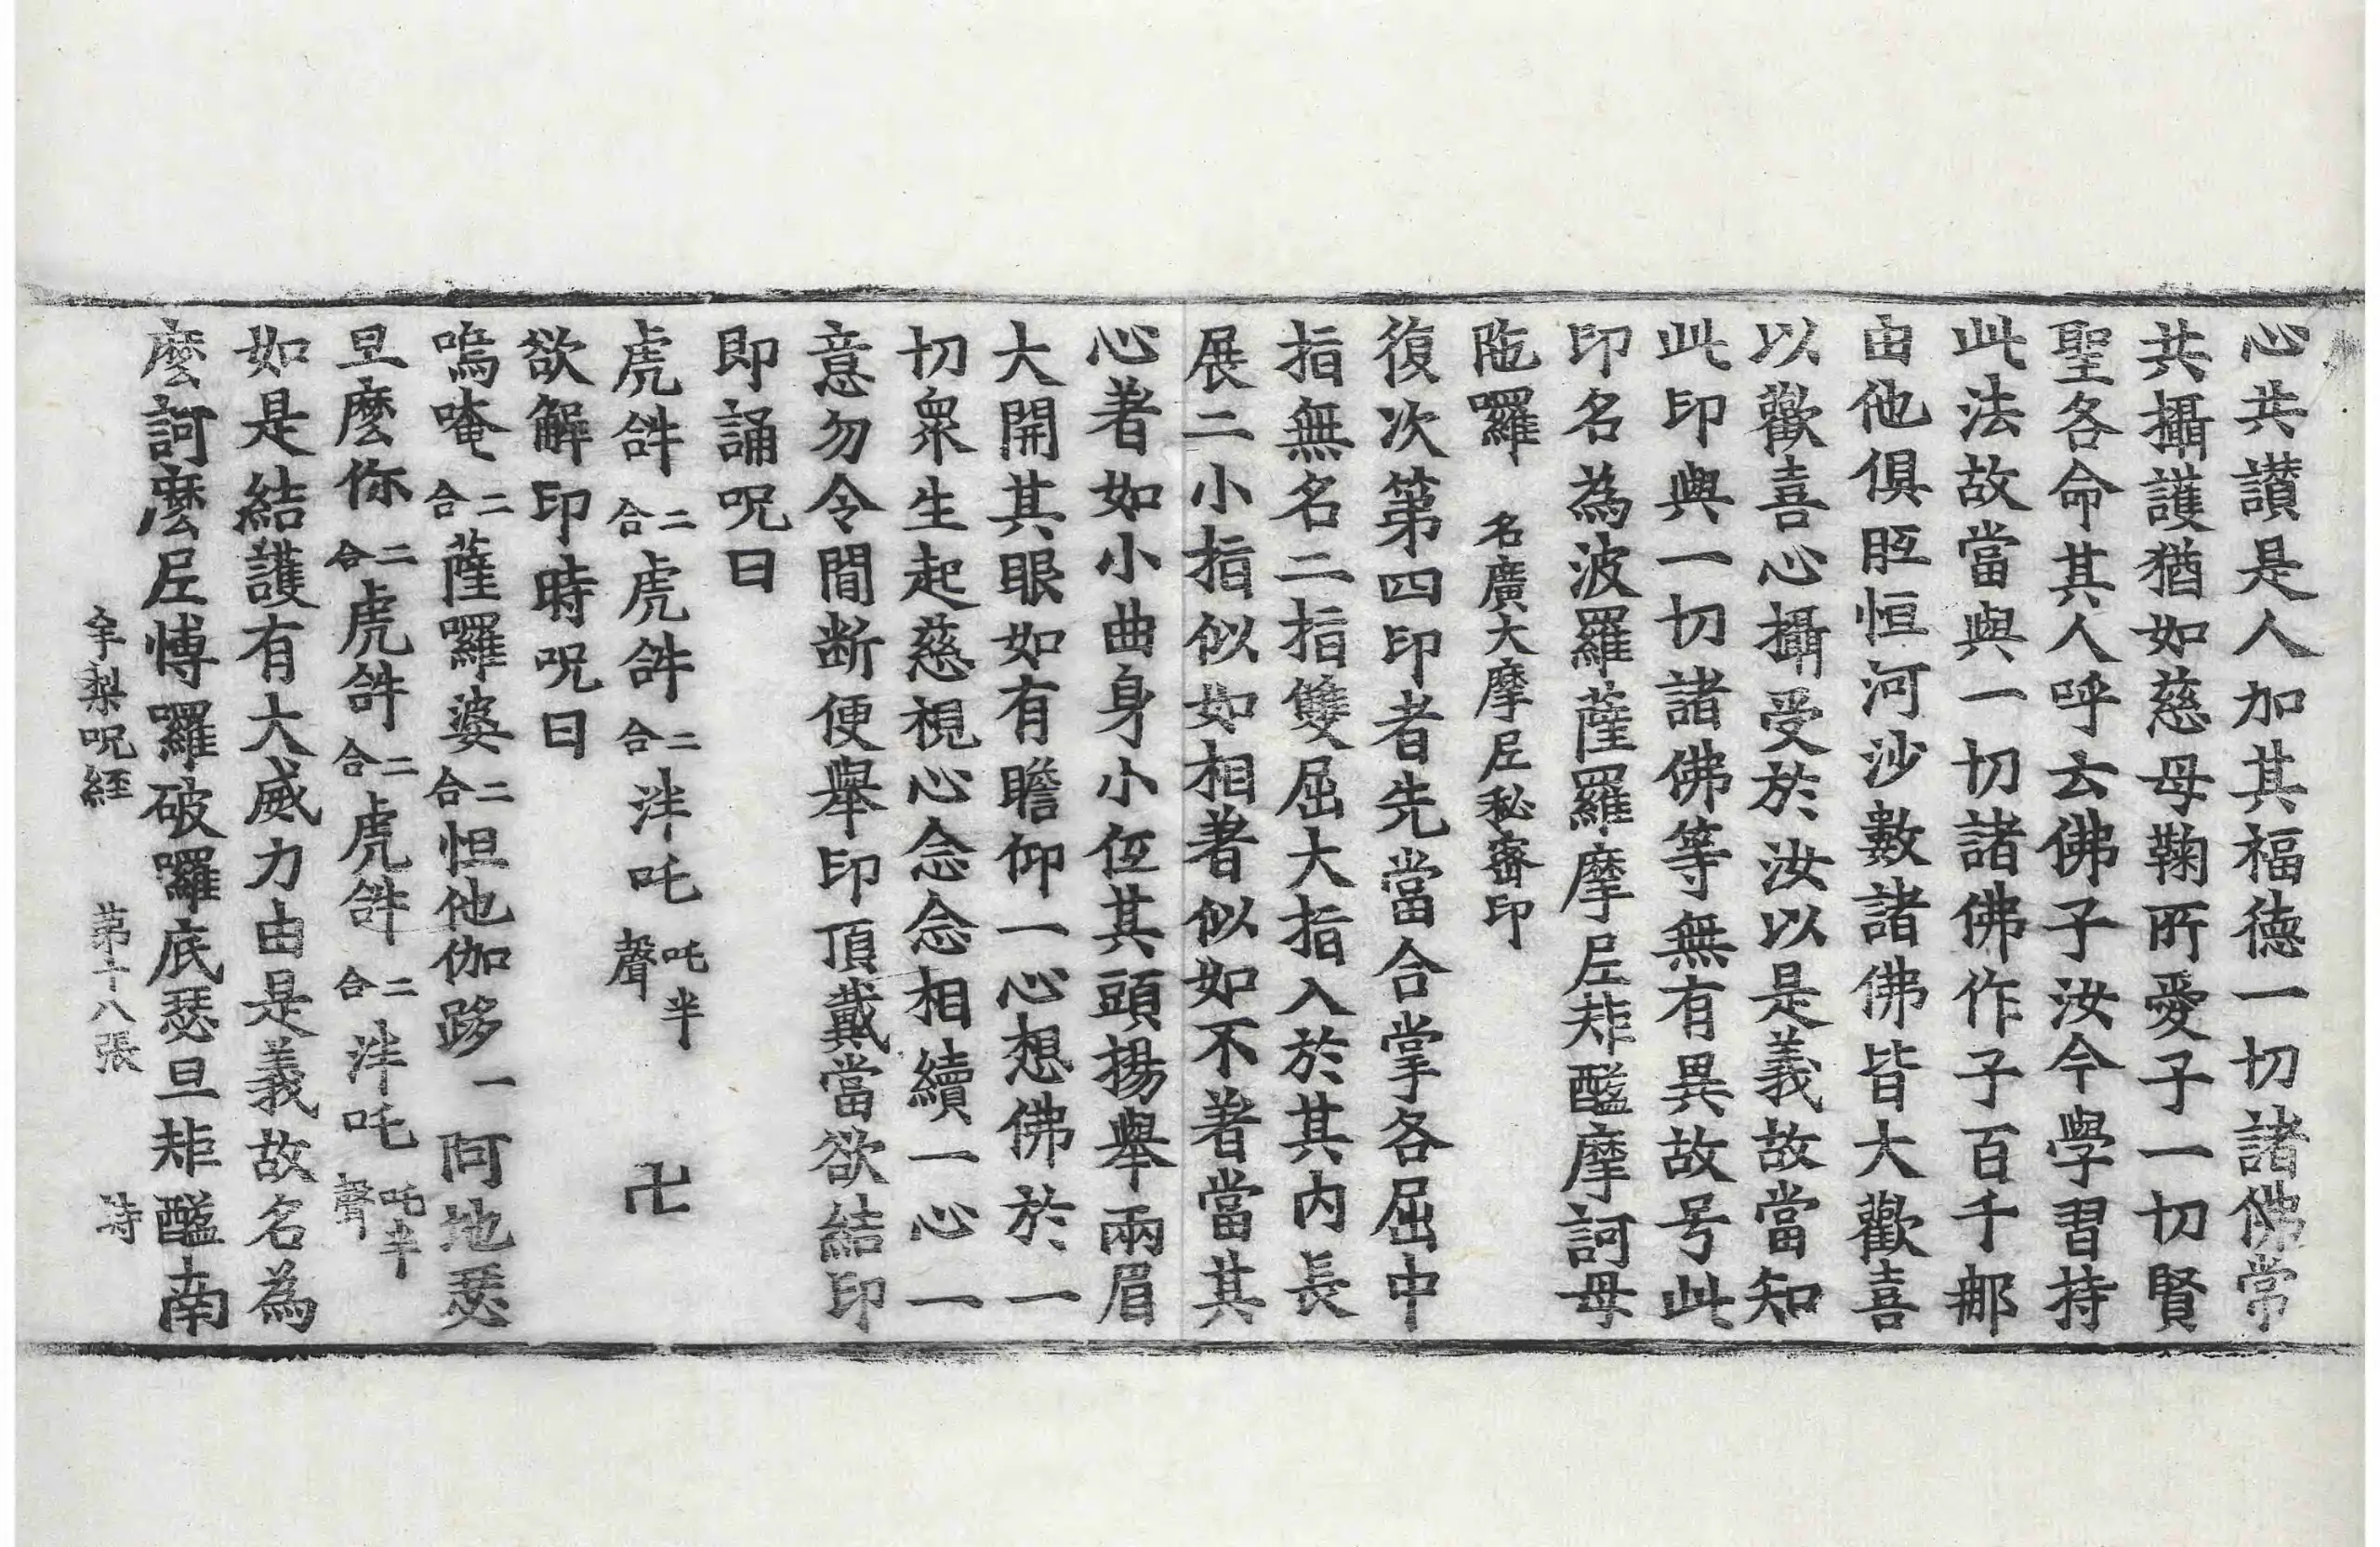 心共讃是人加其福德一切諸佛常
共攝護猶如慈母鞠所愛子一切賢
聖各命其人呼云佛子汝今學習持
此法故當與一切諸佛作子百千那
由他俱胝恒河沙數諸佛皆大歡喜
以歡喜心攝受於汝以是義故當知
此印與一切諸佛等無有異故号此
印名為波羅薩羅摩尼𤙖醯摩訶母
陁囉 名廣大摩尼秘審印
復次第四印者先當合掌各屈中
指無名二指雙屈大指入於其內長
展二小指似如相著似如不著當其
心著如小曲身小伍其頭揚舉兩眉
大開其眼如有瞻仰一心想佛於一
切衆生起慈視心念念相續一心一
意勿令間断便舉印頂戴當欲結印
即誦呪曰
虎𤙖二合虎𤙖二合泮吒吒半聲 卍
欲解印時呪曰
嗚唵二合薩囉婆二合怛他伽跢一阿地瑟
旦麽你二合虎𤙖二合虎𤙖二合泮吒吒半聲
如是結護有大威力由是義故名為
麽訶麽尼愽囉破囉底瑟旦𤙖醯南
牟梨呪経 第十八張 詩